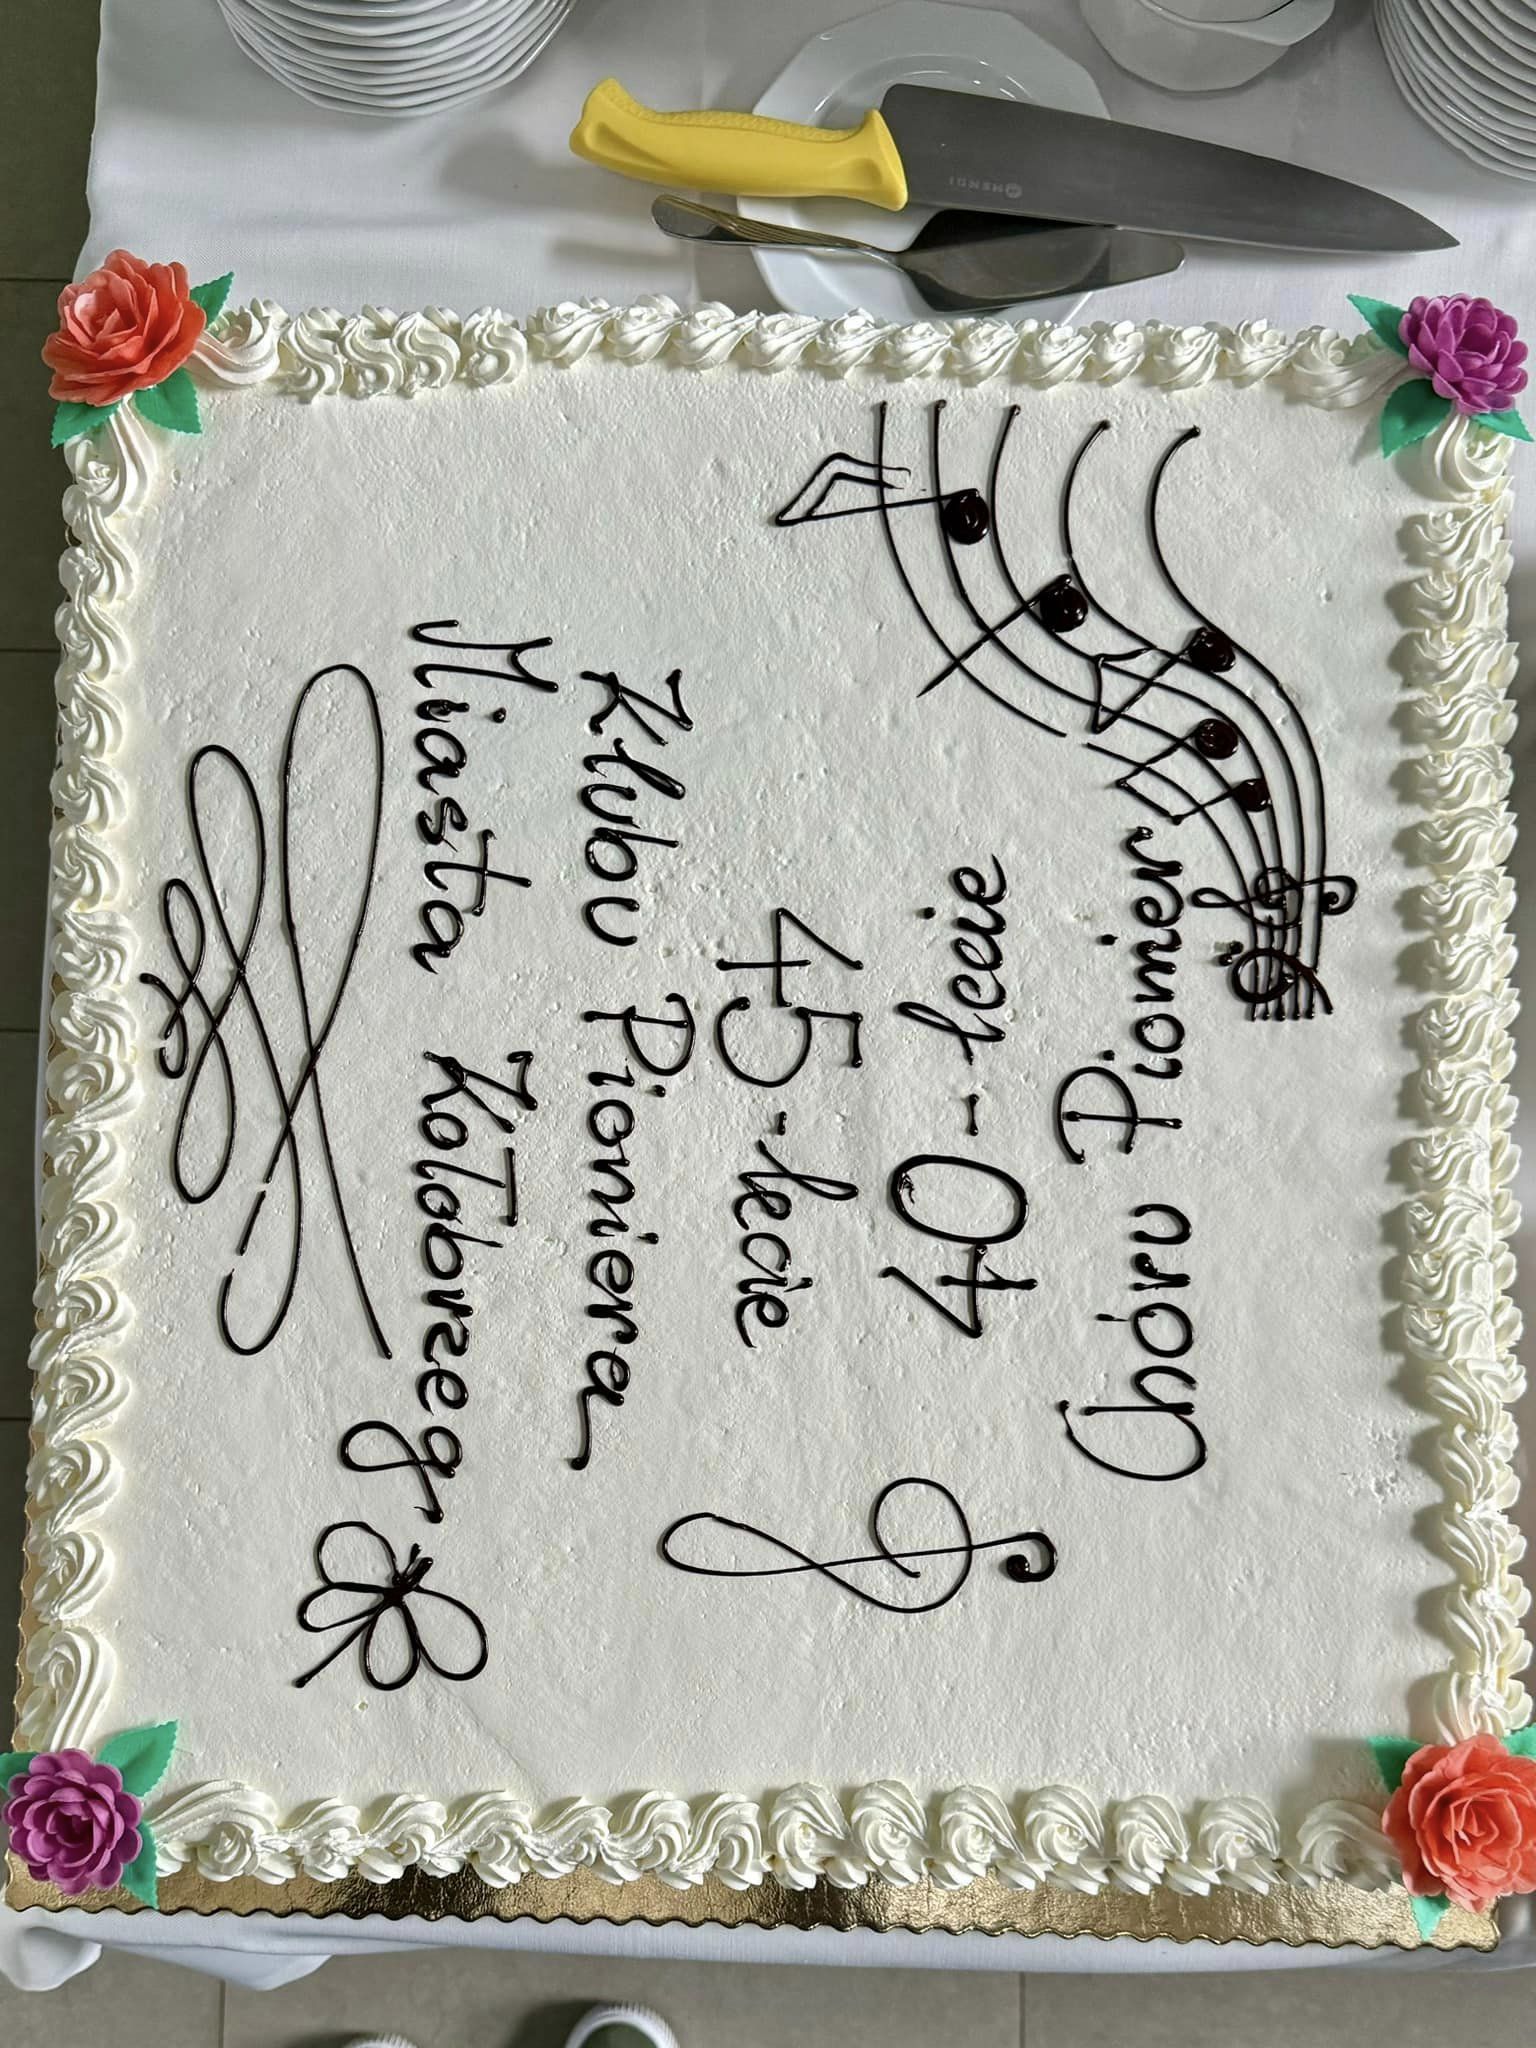 HENDI
40-lecie
Chóru Pionier
45-lecie
Klubu Pioniera
Miasta Kołobrzeg